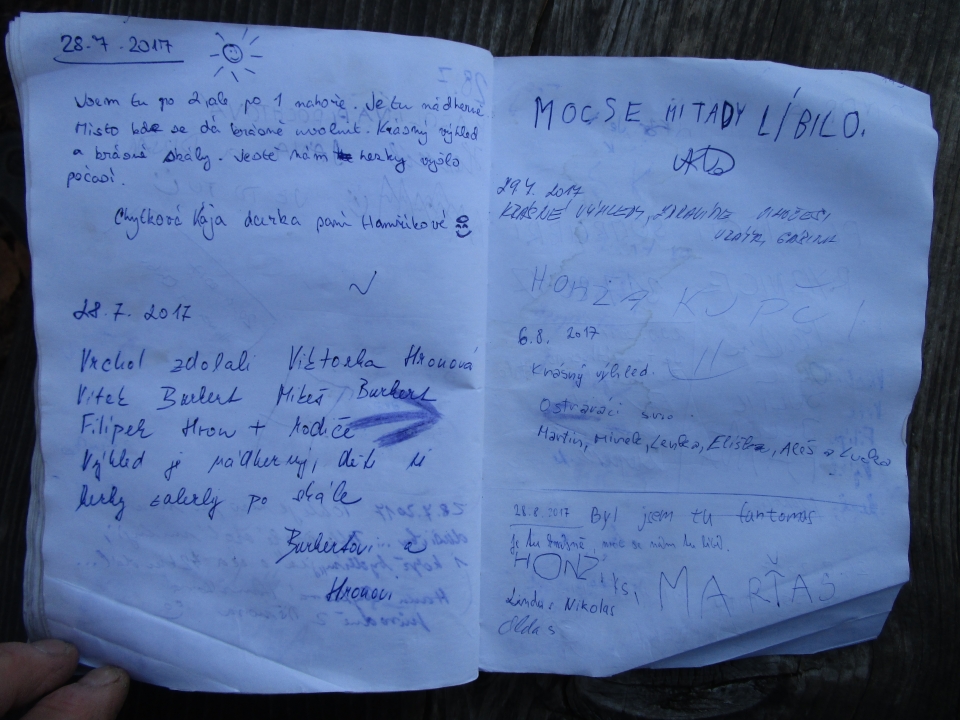 28.7.2017
Jsem tu po 2, ale po 1 nahoře. Je tu nádherné
Místo kde se dá krásně uvolnit. Krasný výhled
a krásné skály. Ještě nám hezky vyšlo
počasí.
Chytková Kája dcerka paní
28.7. 2017
Vrchol zdolali Viktorka Hronová
Vítek Burkert Mikeš Burkert
Filípek Hron + rodiče
Výhled je nádherný, děti si
hezky zalezly po skále
Burkertovi a
Hronovi
MOC SE MI TADY LÍBILO.
29 7. 2017
KRÁSNÉ VÝHLEDY,
HONZA KUPČÍ
6.8. 2017
Krásný výhled.
Ostraváci
Martin, Mirek, Lenka, Eliška, Aleš a
28.8.2017 Byl jsem tu fantomas
je tu krásně, moc se nám tu líbí.
HONZ
MARTAS
Linda s Nikolas